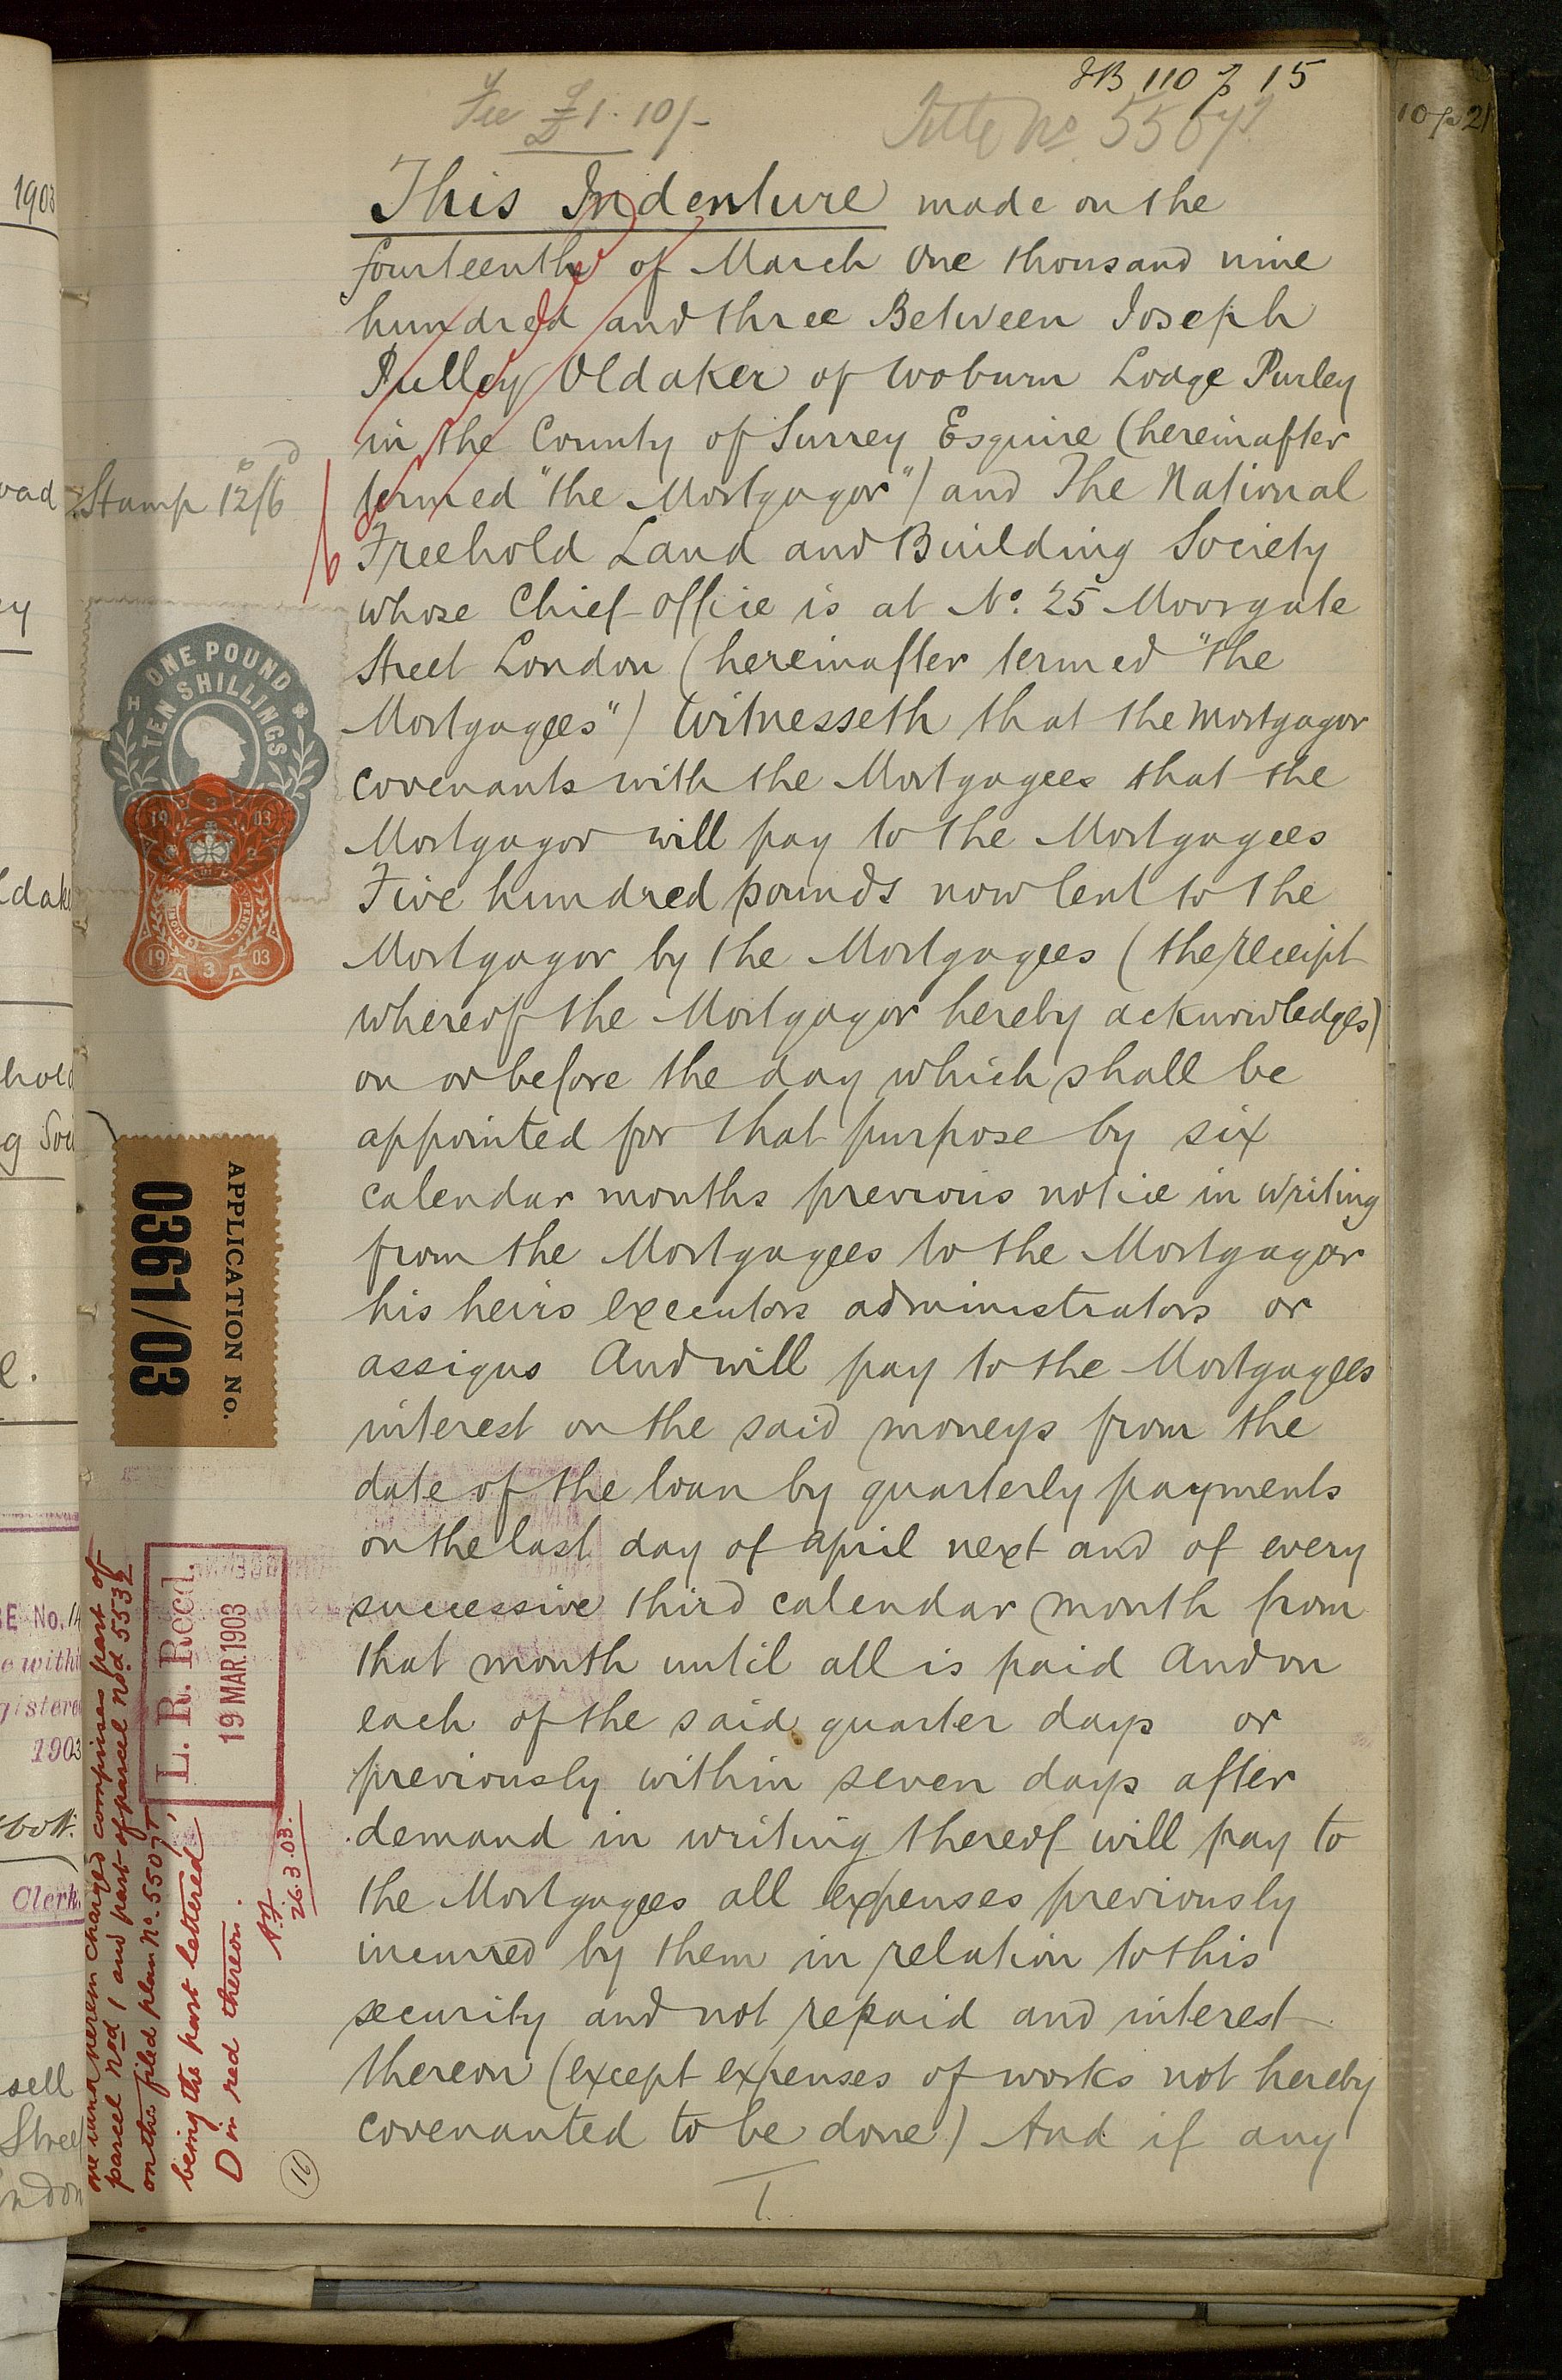 110 p 15
Fee £1.10/-
Title No. 5507
This Indenture made on the
fourteenth of March One thousand nine
hundred and three Between Joseph
Pulley Oldaker of Woburn Lodge Purley
in the County of Surrey Esquire (hereinafter
termed "the Mortgagor") and The National
Freehold Land and Building Society
whose Chief office is at No. 25 Moorgate
Street London (hereinafter termed "the
Mortgagees") Witnesseth that the Mortgagor
covenants with the Mortgagees that the
Mortgagor will pay to the Mortgagees
Five hundred pounds now lent to the
Mortgagor by the Mortgagees (the receipt
whereof the Mortgagor hereby acknowledges)
on or before the day which shall be
appointed for that purpose by six
calendar months previous notice in writing
from the Mortgagees to the Mortgagor
his heirs executors administrators or
assigns And will pay to the Mortgagees
interest on the said moneys from the
date of the loan by quarterly payments
on the last day of April next and of every
successive third calendar month from
that month until all is paid And on
each of the said quarter days or
previously within seven days after
demand in writing thereof will pay to
the Mortgagees all expenses previously
incurred by them in relation to this
security and not repaid and interest
thereon (except expenses of works not hereby
covenanted to be done) And if any
1.
Stamp 12/6
ONE POUND
TEN SHILLINGS
19 3 03
19 3 03
APPLICATION No.
0361/03
L. R. Recd.
19 MAR.1903
charged comprises part of
parcel No'd 1 and part of parcel No'd 5532
on the filed plan No. 5507
being the part lettered
D in red thereon.
26.3.03.
16
1903
E No.
1903
Clerk
sell
Street